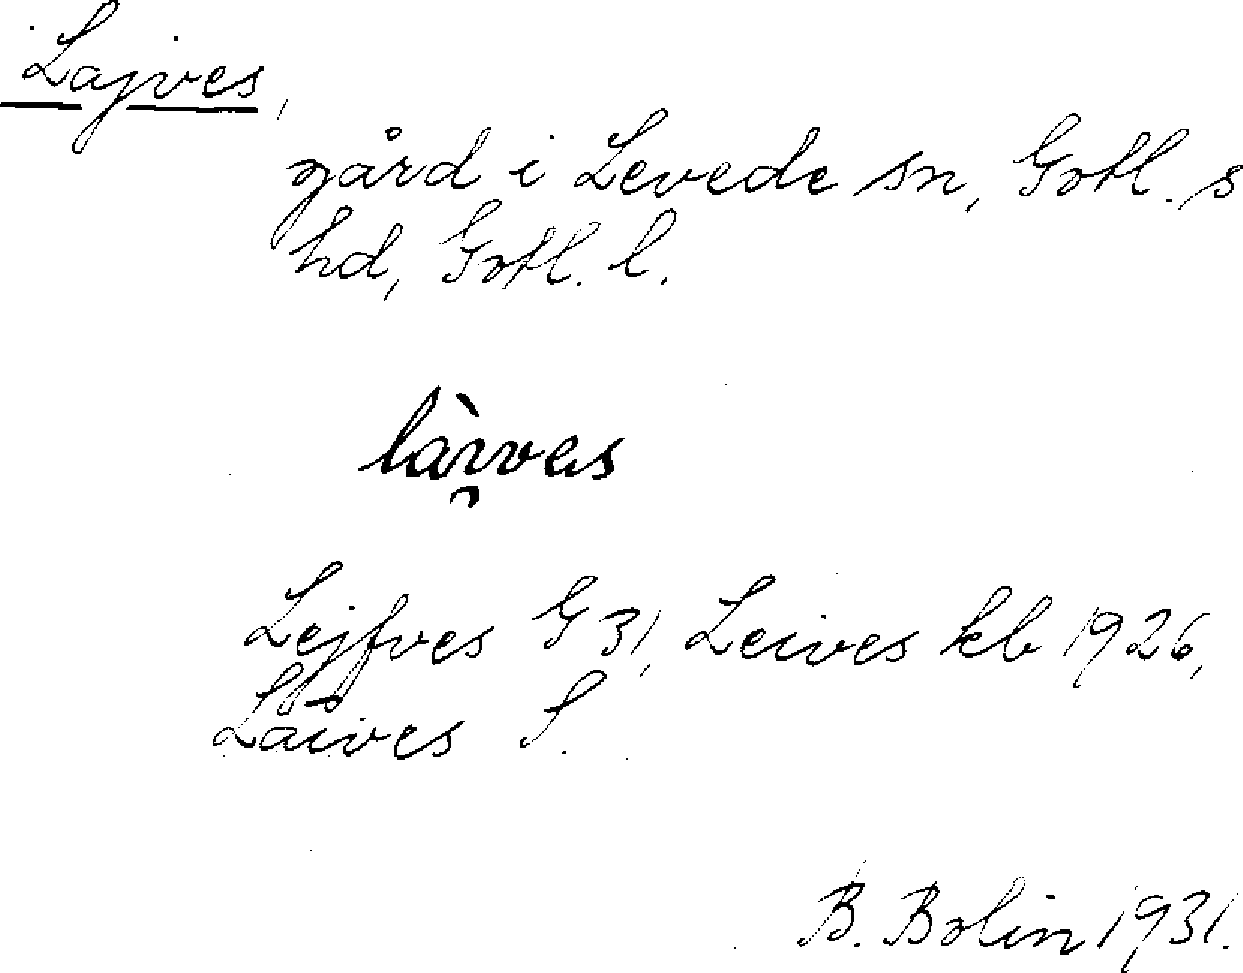 Lajves,
gård i Levede sn, Gotl. s
hd, Gotl. l.
làı̯vəs
Lejfves G 31, Leives kb 1926,
Laives S.
B. Bolin 1931.